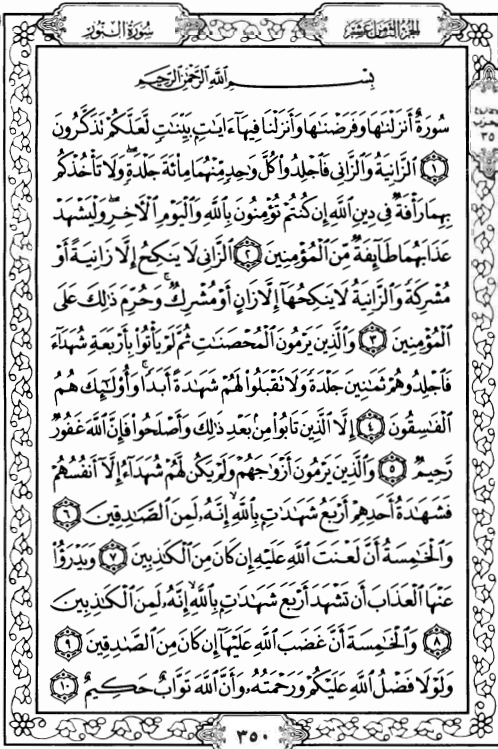 سُورَةُ النُّورِ
الجُزْءُ الثَّامِنَ عَشَرَ
بِسْمِ ٱللَّهِ ٱلرَّحْمَٰنِ ٱلرَّحِيمِ
سُورَةٌ أَنزَلْنَٰهَا وَفَرَضْنَٰهَا وَأَنزَلْنَا فِيهَآ ءَايَٰتٍۭ بَيِّنَٰتٍ لَّعَلَّكُمْ تَذَكَّرُونَ
١ ٱلزَّانِيَةُ وَٱلزَّانِى فَٱجْلِدُوا۟ كُلَّ وَٰحِدٍ مِّنْهُمَا مِا۟ئَةَ جَلْدَةٍ ۖ وَلَا تَأْخُذْكُم
بِهِمَا رَأْفَةٌ فِى دِينِ ٱللَّهِ إِن كُنتُمْ تُؤْمِنُونَ بِٱللَّهِ وَٱلْيَوْمِ ٱلْءَاخِرِ ۖ وَلْيَشْهَدْ
عَذَابَهُمَا طَآئِفَةٌ مِّنَ ٱلْمُؤْمِنِينَ ٢ ٱلزَّانِى لَا يَنكِحُ إِلَّا زَانِيَةً أَوْ
مُشْرِكَةً وَٱلزَّانِيَةُ لَا يَنكِحُهَآ إِلَّا زَانٍ أَوْ مُشْرِكٌ ۚ وَحُرِّمَ ذَٰلِكَ عَلَى
ٱلْمُؤْمِنِينَ ٣ وَٱلَّذِينَ يَرْمُونَ ٱلْمُحْصَنَٰتِ ثُمَّ لَمْ يَأْتُوا۟ بِأَرْبَعَةِ شُهَدَآءَ
فَٱجْلِدُوهُمْ ثَمَٰنِينَ جَلْدَةً وَلَا تَقْبَلُوا۟ لَهُمْ شَهَٰدَةً أَبَدًا ۚ وَأُو۟لَٰٓئِكَ هُمُ
ٱلْفَٰسِقُونَ ٤ إِلَّا ٱلَّذِينَ تَابُوا۟ مِنۢ بَعْدِ ذَٰلِكَ وَأَصْلَحُوا۟ فَإِنَّ ٱللَّهَ غَفُورٌ
رَّحِيمٌ ٥ وَٱلَّذِينَ يَرْمُونَ أَزْوَٰجَهُمْ وَلَمْ يَكُن لَّهُمْ شُهَدَآءُ إِلَّآ أَنفُسُهُمْ
فَشَهَٰدَةُ أَحَدِهِمْ أَرْبَعُ شَهَٰدَٰتٍۭ بِٱللَّهِ ۙ إِنَّهُۥ لَمِنَ ٱلصَّٰدِقِينَ ٦
وَٱلْخَٰمِسَةُ أَنَّ لَعْنَتَ ٱللَّهِ عَلَيْهِ إِن كَانَ مِنَ ٱلْكَٰذِبِينَ ٧ وَيَدْرَؤُا۟
عَنْهَا ٱلْعَذَابَ أَن تَشْهَدَ أَرْبَعَ شَهَٰدَٰتٍۭ بِٱللَّهِ ۙ إِنَّهُۥ لَمِنَ ٱلْكَٰذِبِينَ
٨ وَٱلْخَٰمِسَةَ أَنَّ غَضَبَ ٱللَّهِ عَلَيْهَآ إِن كَانَ مِنَ ٱلصَّٰدِقِينَ ٩
وَلَوْلَا فَضْلُ ٱللَّهِ عَلَيْكُمْ وَرَحْمَتُهُۥ وَأَنَّ ٱللَّهَ تَوَّابٌ حَكِيمٌ ١٠
٣٥٠